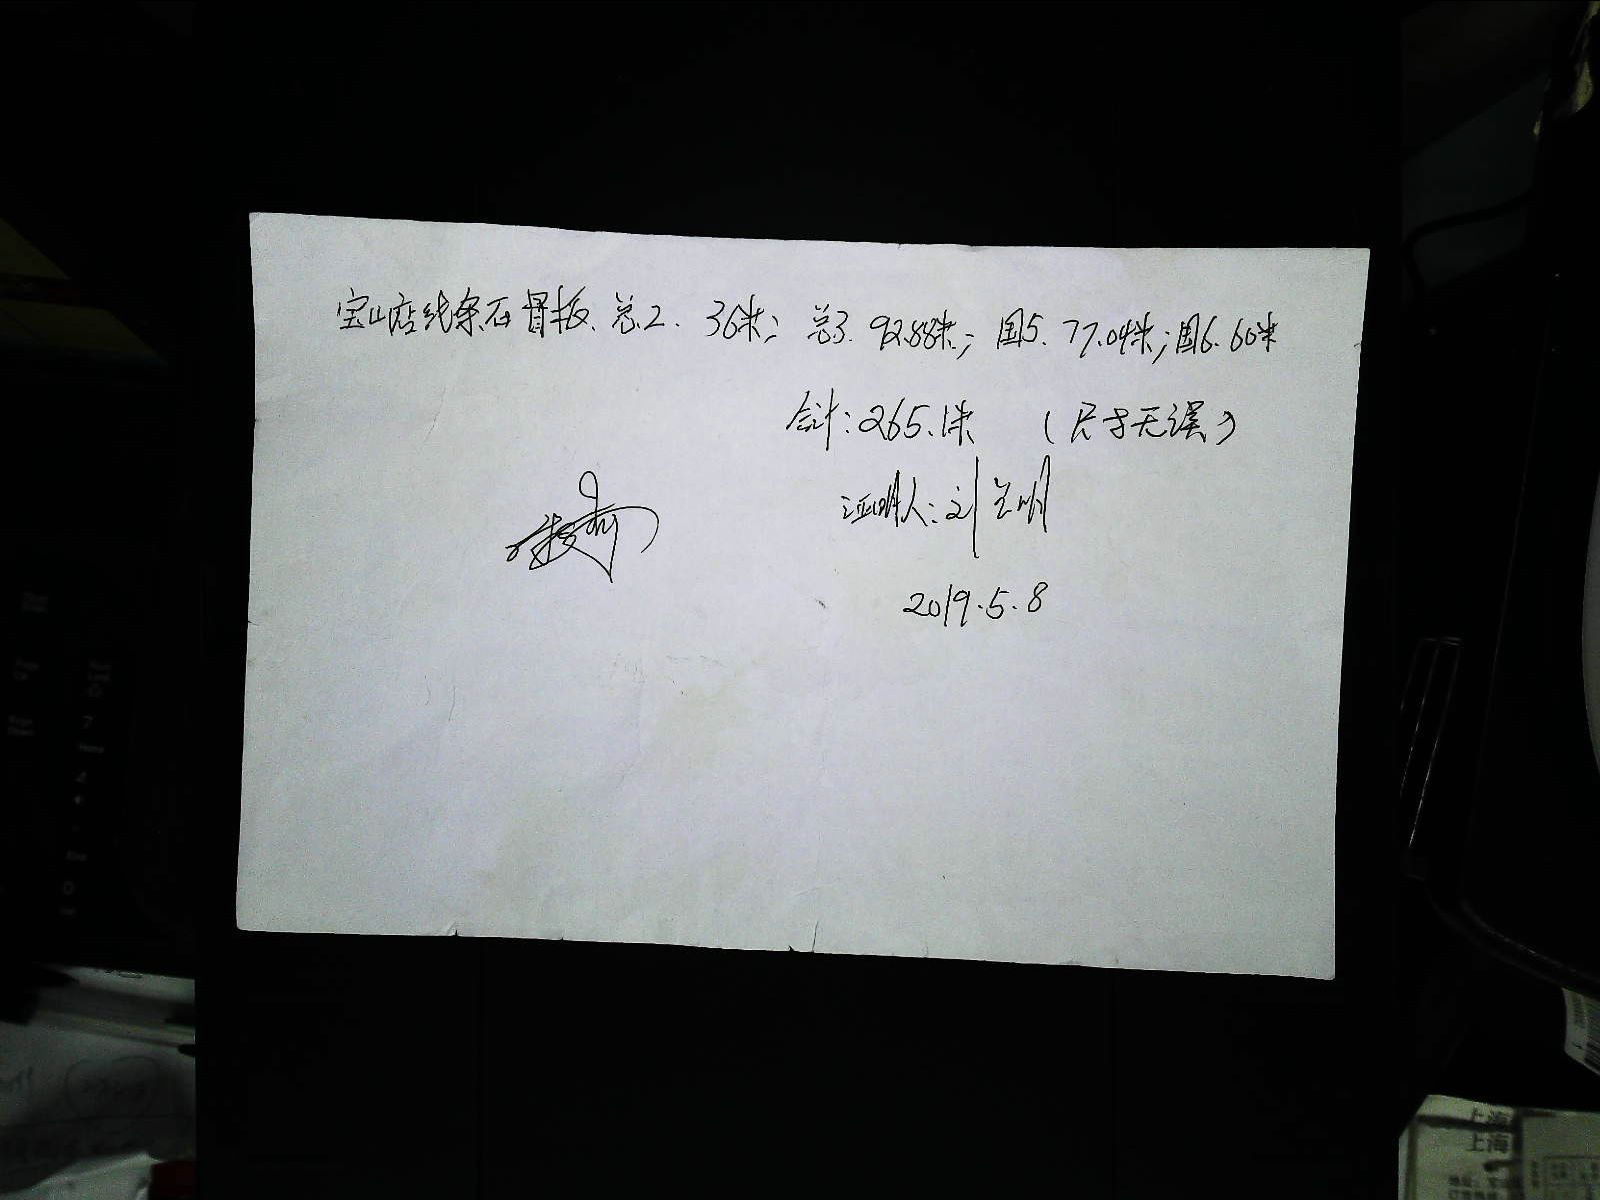 宝山店线条石膏板、总2. 36米; 总3. 92.88米; 国5. 77.04米; 国6. 60米
合计: 265.1米 (尺寸无误)
证明人: 刘兰明
2019.5.8
上海
上海